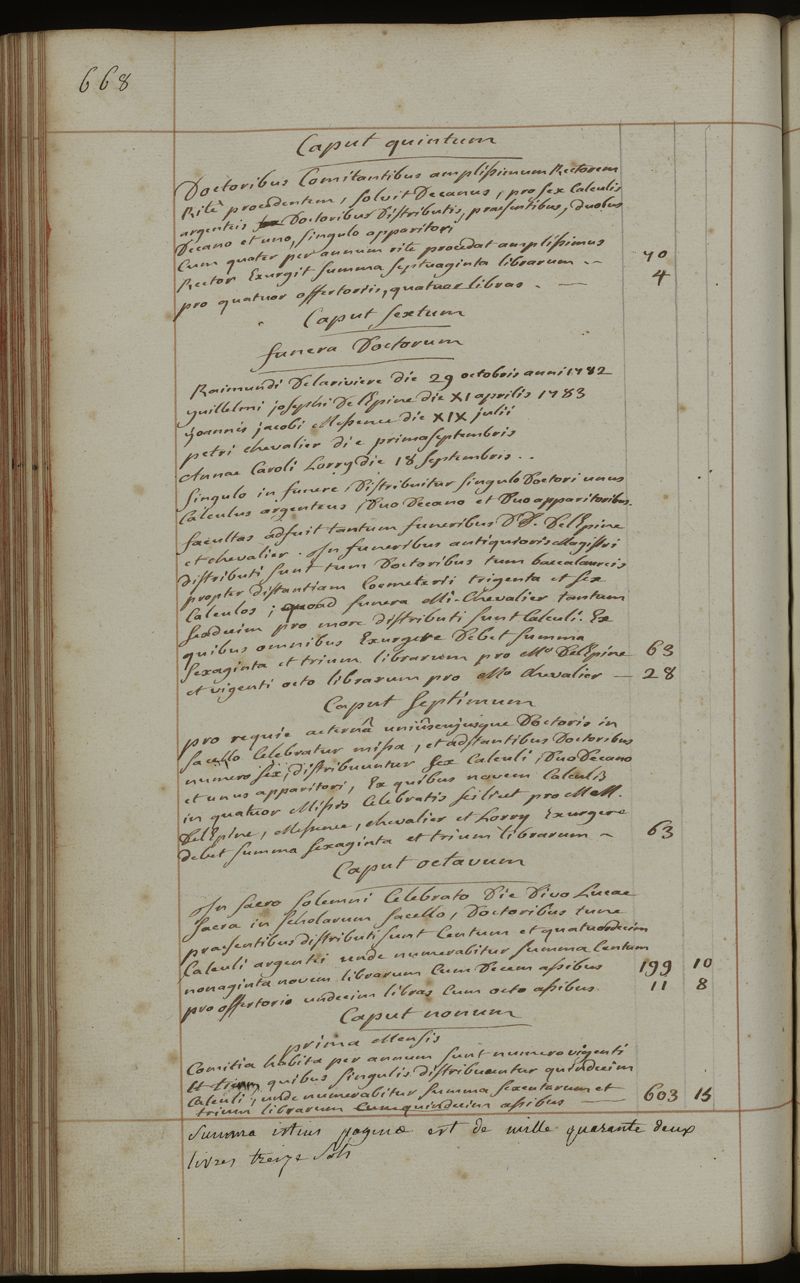 668
Caput quintum
Doctoribus Comitantibus amplissimum Rectorem
Ritè procedentem, solvit Decanus, pro sex Calculis
argenteis Doctoribus Distributis, praesentibus, duobus
Decano et uno, singulo apparitori
Cum quater per annum rite procedat amplissimus
Rector Exurgit summa septuaginta librarum -- 70
pro quatuor offertoriis, quatuor libras . — 4
Caput sextum
funera Doctorum
Raimundi Delariviere die 29 octobris anni 1782
guillelmi josephi De l'Epine die XI aprilis 1783
joannis jacobi Messence die XIX julii
petri chevalier die prima septembris
Annae Caroli Lorry die 18 septembris . .
singulo in funere, Distribuitur singulo Doctori unus
Calculus argenteus, Duo Decano et Duo apparitoribus.
facultas adfuit tantum funeribus DD. Del'Epine
et chevalier. In funeribus antiquioris Magistri
distributi sunt tum Doctoribus tum baccalaureis
propter distantiam Coemeterii trigenta et sex
Calculos ; quoad funera Mi. Chevalier tantum
sexdecim pro more distributi sunt Calculi. Ex
quibus omnibus Exurgere Debet summa
sexaginta et trium librarum pro Mo Del'Epine 63
et vigenti octo librarum pro Mo chevalier — 28
Caput septimum
pro requie aeternâ uniûscujusque Doctoris in
sacello Celebratur missa, et adstantibus Doctoribus
numero sex, distribuuntur sex Calculi, Duo Decano
et unus apparitori, Ex quibus novem Calculis
in quatuor Missis Celebratis scilicet pro MM.
Del'Epine, Messence, chevalier et Lorry Exurgere
debet summa sexaginta et trium librarum - 63
Caput octavum
In sacro solemni Celebrato Die Divo Lucae
sacra in scholarum sacello, Doctoribus tunc
praesentibus distributi sunt Centum et quatuordecim
Calculi argentei unde numerabitur summa Centum
nonaginta novem librarum Cum Decem assibus 199 10
pro offertorio undecim libras Cum octo assibus. 11 8
Caput nonum
prima Mensis
Comitia habita per annum sunt numero vigenti
et quibus singulis distribuentur quindecim
Calculi, unde numerabitur summa sexentarum et
trium librarum Cum quindecim assibus — 603 15
Summa istius paginæ est de mille quarante deux
livres treize sols